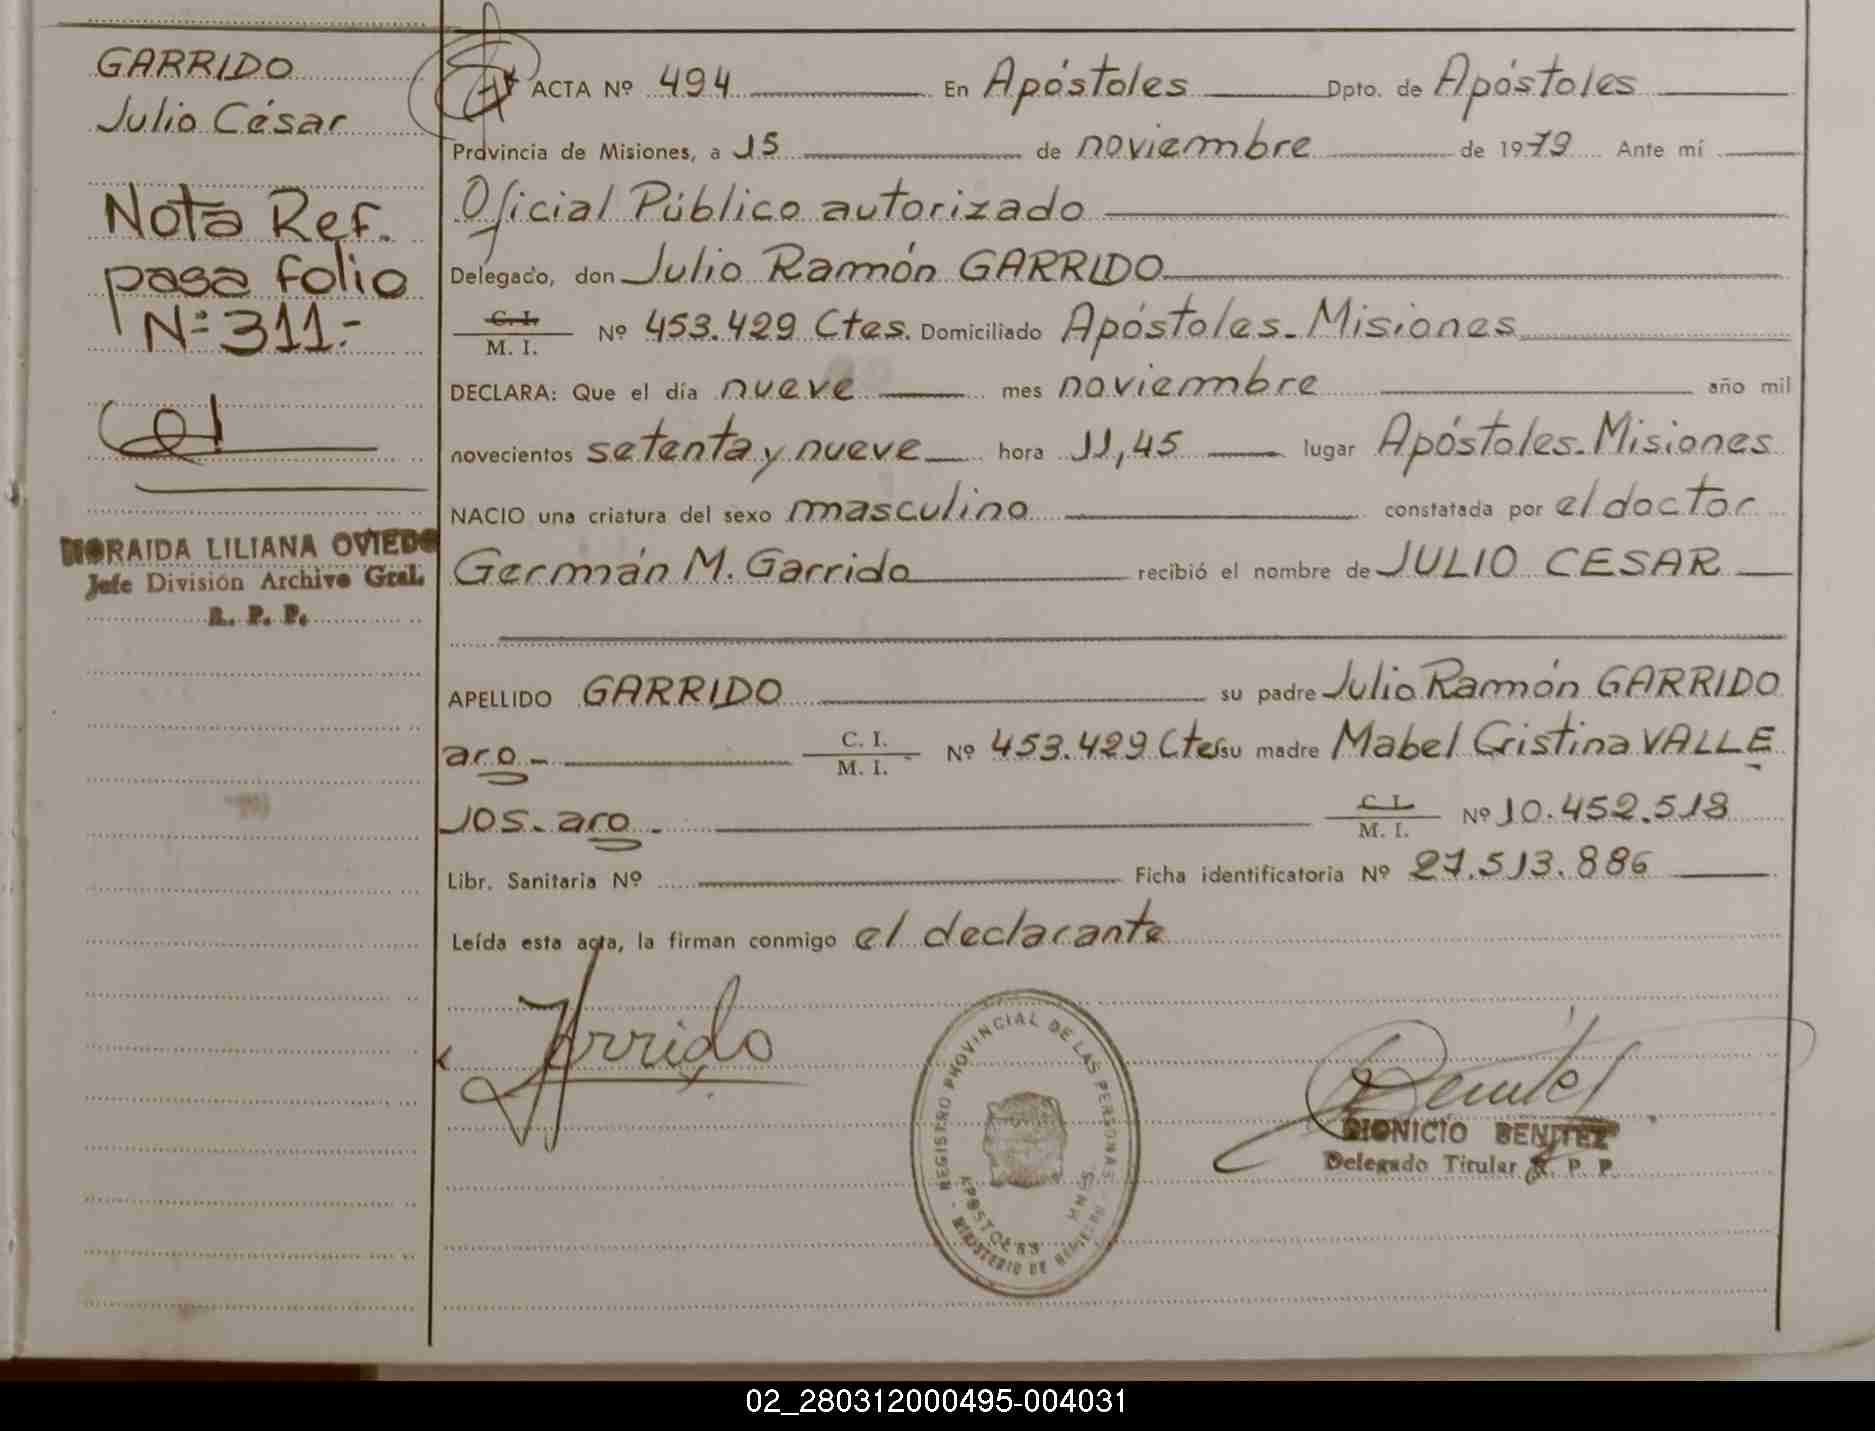 GARRIDO
Julio César
Nota Ref.
pasa folio
Nº 311.-
NORAIDA LILIANA OVIEDO
Jefe División Archivo Gral.
R. P. P.
ACTA Nº 494 En Apóstoles Dpto. de Apóstoles
Provincia de Misiones, a 15 de noviembre de 1979 Ante mí
Oficial Público autorizado
Delegado, don Julio Ramón GARRIDO
C. I. / M. I. Nº 453.429 Ctes. Domiciliado Apóstoles. Misiones
DECLARA: Que el día nueve mes noviembre año mil
novecientos setenta y nueve hora 11,45 lugar Apóstoles. Misiones
NACIO una criatura del sexo masculino constatada por el doctor
Germán M. Garrido recibió el nombre de JULIO CESAR
APELLIDO GARRIDO su padre Julio Ramón GARRIDO
aro - C. I. / M. I. Nº 453.429 Ctes su madre Mabel Cristina VALLE
JOS. aro - C. I. / M. I. Nº 10.452.518
Libr. Sanitaria Nº Ficha identificatoria Nº 27.513.886
Leída esta acta, la firman conmigo el declarante
Garrido
REGISTRO PROVINCIAL DE LAS PERSONAS
APOSTOLES MNES.
MINISTERIO DE
Benitez
DIONICIO BENITEZ
Delegado Titular R. P. P.
02_280312000495-004031